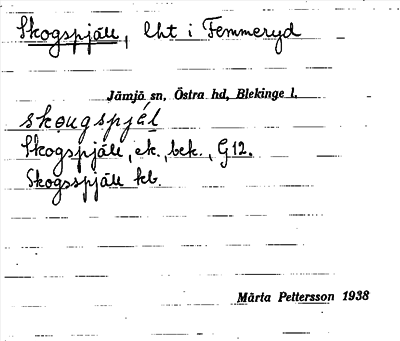 Skogspjäll, lht i Femmeryd
Jämjö sn, Östra hd, Blekinge l.
skǫugspjäl
Skogspjäll, ek., bek., G12.
Skogsspjäll kb.
Märta Pettersson 1938